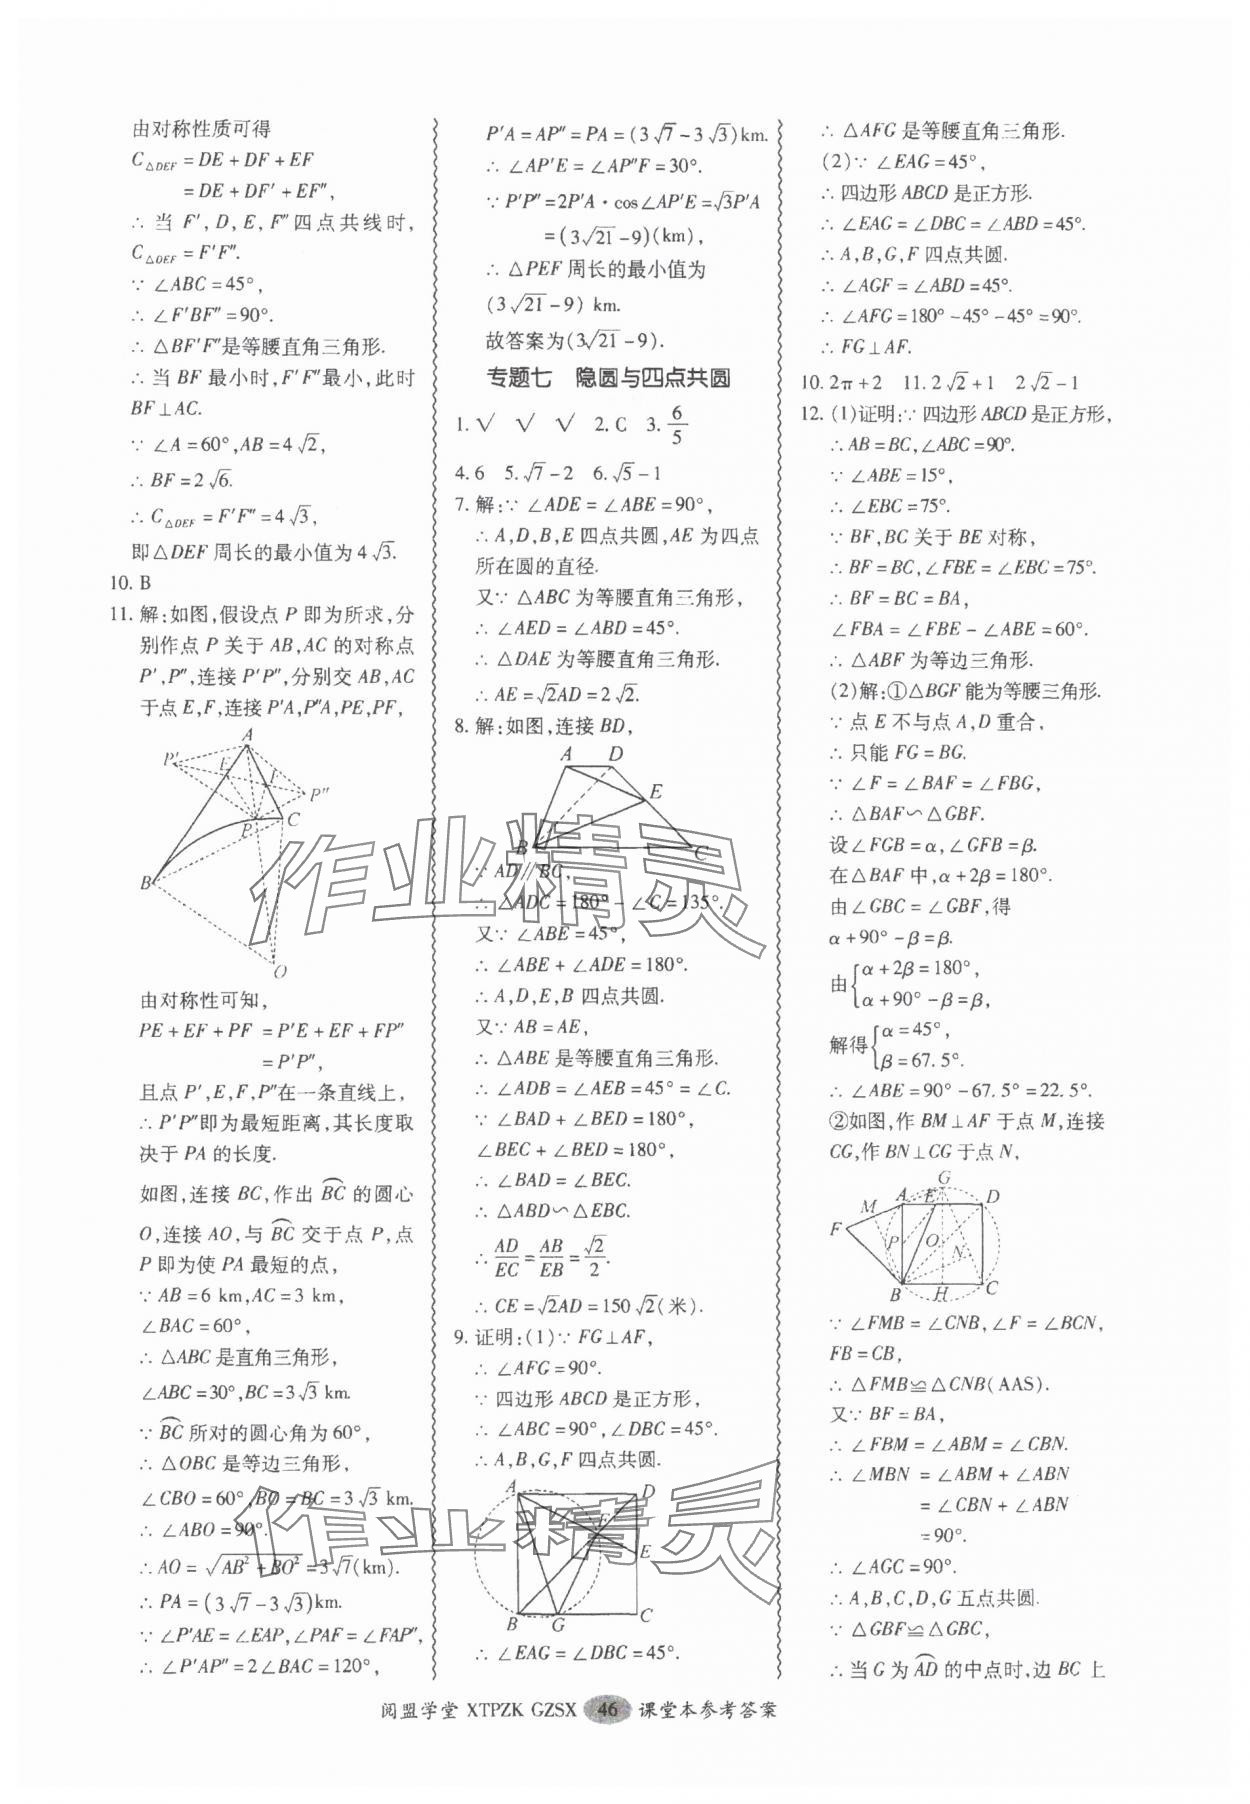 由对称性质可得
C△DEF = DE + DF + EF
= DE + DF′ + EF″,
∴ 当 F′, D, E, F″ 四点共线时,
C△DEF = F′F″.
∵ ∠ABC = 45°,
∴ ∠F′BF″ = 90°.
∴ △BF′F″是等腰直角三角形.
∴ 当 BF 最小时, F′F″最小, 此时
BF⊥AC.
∵ ∠A = 60°, AB = 4√2,
∴ BF = 2√6.
∴ C△DEF = F′F″ = 4√3,
即△DEF 周长的最小值为 4√3.
10. B
11. 解:如图,假设点 P 即为所求,分
别作点 P 关于 AB,AC 的对称点
P′,P″,连接 P′P″,分别交 AB,AC
于点 E,F,连接 P′A,P″A,PE,PF,
A
P′
E
F
P″
P
C
B
O
由对称性可知,
PE + EF + PF = P′E + EF + FP″
= P′P″,
且点 P′,E,F,P″在一条直线上,
∴ P′P″即为最短距离,其长度取
决于 PA 的长度.
如图,连接 BC,作出 BC⌒ 的圆心
O,连接 AO,与 BC⌒ 交于点 P,点
P 即为使 PA 最短的点,
∵ AB = 6 km, AC = 3 km,
∠BAC = 60°,
∴ △ABC 是直角三角形,
∠ABC = 30°, BC = 3√3 km.
∵ BC⌒ 所对的圆心角为 60°,
∴ △OBC 是等边三角形,
∠CBO = 60°, BO = BC = 3√3 km.
∴ ∠ABO = 90°.
∴ AO = √(AB² + BO²) = 3√7(km).
∴ PA = (3√7 - 3√3)km.
∵ ∠P′AE = ∠EAP, ∠PAF = ∠FAP″,
∴ ∠P′AP″ = 2∠BAC = 120°,
P′A = AP″ = PA = (3√7 - 3√3)km.
∴ ∠AP′E = ∠AP″F = 30°.
∵ P′P″ = 2P′A·cos∠AP′E = √3P′A
= (3√21 - 9)(km),
∴ △PEF 周长的最小值为
(3√21 - 9) km.
故答案为(3√21 - 9).
专题七 隐圆与四点共圆
1. √ √ √ 2. C 3. 6/5
4. 6 5. √7 - 2 6. √5 - 1
7. 解:∵ ∠ADE = ∠ABE = 90°,
∴ A,D,B,E 四点共圆,AE 为四点
所在圆的直径.
又∵ △ABC 为等腰直角三角形,
∴ ∠AED = ∠ABD = 45°.
∴ △DAE 为等腰直角三角形.
∴ AE = √2AD = 2√2.
8. 解:如图,连接 BD,
A
D
E
B
C
∵ AD∥BC,
∴ ∠ADC = 180° - ∠C = 135°.
又∵ ∠ABE = 45°,
∴ ∠ABE + ∠ADE = 180°.
∴ A,D,E,B 四点共圆.
又∵ AB = AE,
∴ △ABE 是等腰直角三角形.
∴ ∠ADB = ∠AEB = 45° = ∠C.
∵ ∠BAD + ∠BED = 180°,
∠BEC + ∠BED = 180°,
∴ ∠BAD = ∠BEC.
∴ △ABD∽△EBC.
∴ AD/EC = AB/EB = √2/2.
∴ CE = √2AD = 150√2(米).
9. 证明:(1)∵ FG⊥AF,
∴ ∠AFG = 90°.
∵ 四边形 ABCD 是正方形,
∴ ∠ABC = 90°, ∠DBC = 45°.
∴ A,B,G,F 四点共圆.
A
D
F
E
B
G
C
∴ ∠EAG = ∠DBC = 45°.
∴ △AFG 是等腰直角三角形.
(2)∵ ∠EAG = 45°,
∴ 四边形 ABCD 是正方形.
∴ ∠EAG = ∠DBC = ∠ABD = 45°.
∴ A,B,G,F 四点共圆.
∴ ∠AGF = ∠ABD = 45°.
∴ ∠AFG = 180° - 45° - 45° = 90°.
∴ FG⊥AF.
10. 2π + 2 11. 2√2 + 1 2√2 - 1
12. (1)证明:∵ 四边形 ABCD 是正方形,
∴ AB = BC, ∠ABC = 90°.
∵ ∠ABE = 15°,
∴ ∠EBC = 75°.
∵ BF,BC 关于 BE 对称,
∴ BF = BC, ∠FBE = ∠EBC = 75°.
∴ BF = BC = BA,
∠FBA = ∠FBE - ∠ABE = 60°.
∴ △ABF 为等边三角形.
(2)解:①△BGF 能为等腰三角形.
∵ 点 E 不与点 A,D 重合,
∴ 只能 FG = BG.
∵ ∠F = ∠BAF = ∠FBG,
∴ △BAF∽△GBF.
设∠FGB = α, ∠GFB = β.
在△BAF 中, α + 2β = 180°.
由∠GBC = ∠GBF,得
α + 90° - β = β.
由{α + 2β = 180°,
α + 90° - β = β,
解得{α = 45°,
β = 67.5°.
∴ ∠ABE = 90° - 67.5° = 22.5°.
②如图,作 BM⊥AF 于点 M,连接
CG,作 BN⊥CG 于点 N,
G
A
E
D
M
F
P
O
N
B
H
C
∵ ∠FMB = ∠CNB, ∠F = ∠BCN,
FB = CB,
∴ △FMB≌△CNB(AAS).
又∵ BF = BA,
∴ ∠FBM = ∠ABM = ∠CBN.
∴ ∠MBN = ∠ABM + ∠ABN
= ∠CBN + ∠ABN
= 90°.
∴ ∠AGC = 90°.
∴ A,B,C,D,G 五点共圆.
∵ △GBF≌△GBC,
∴ 当 G 为 AD⌒ 的中点时,边 BC 上
作业精灵
作业精灵
阅盟学堂 XTPZK GZSX 46 课堂本参考答案